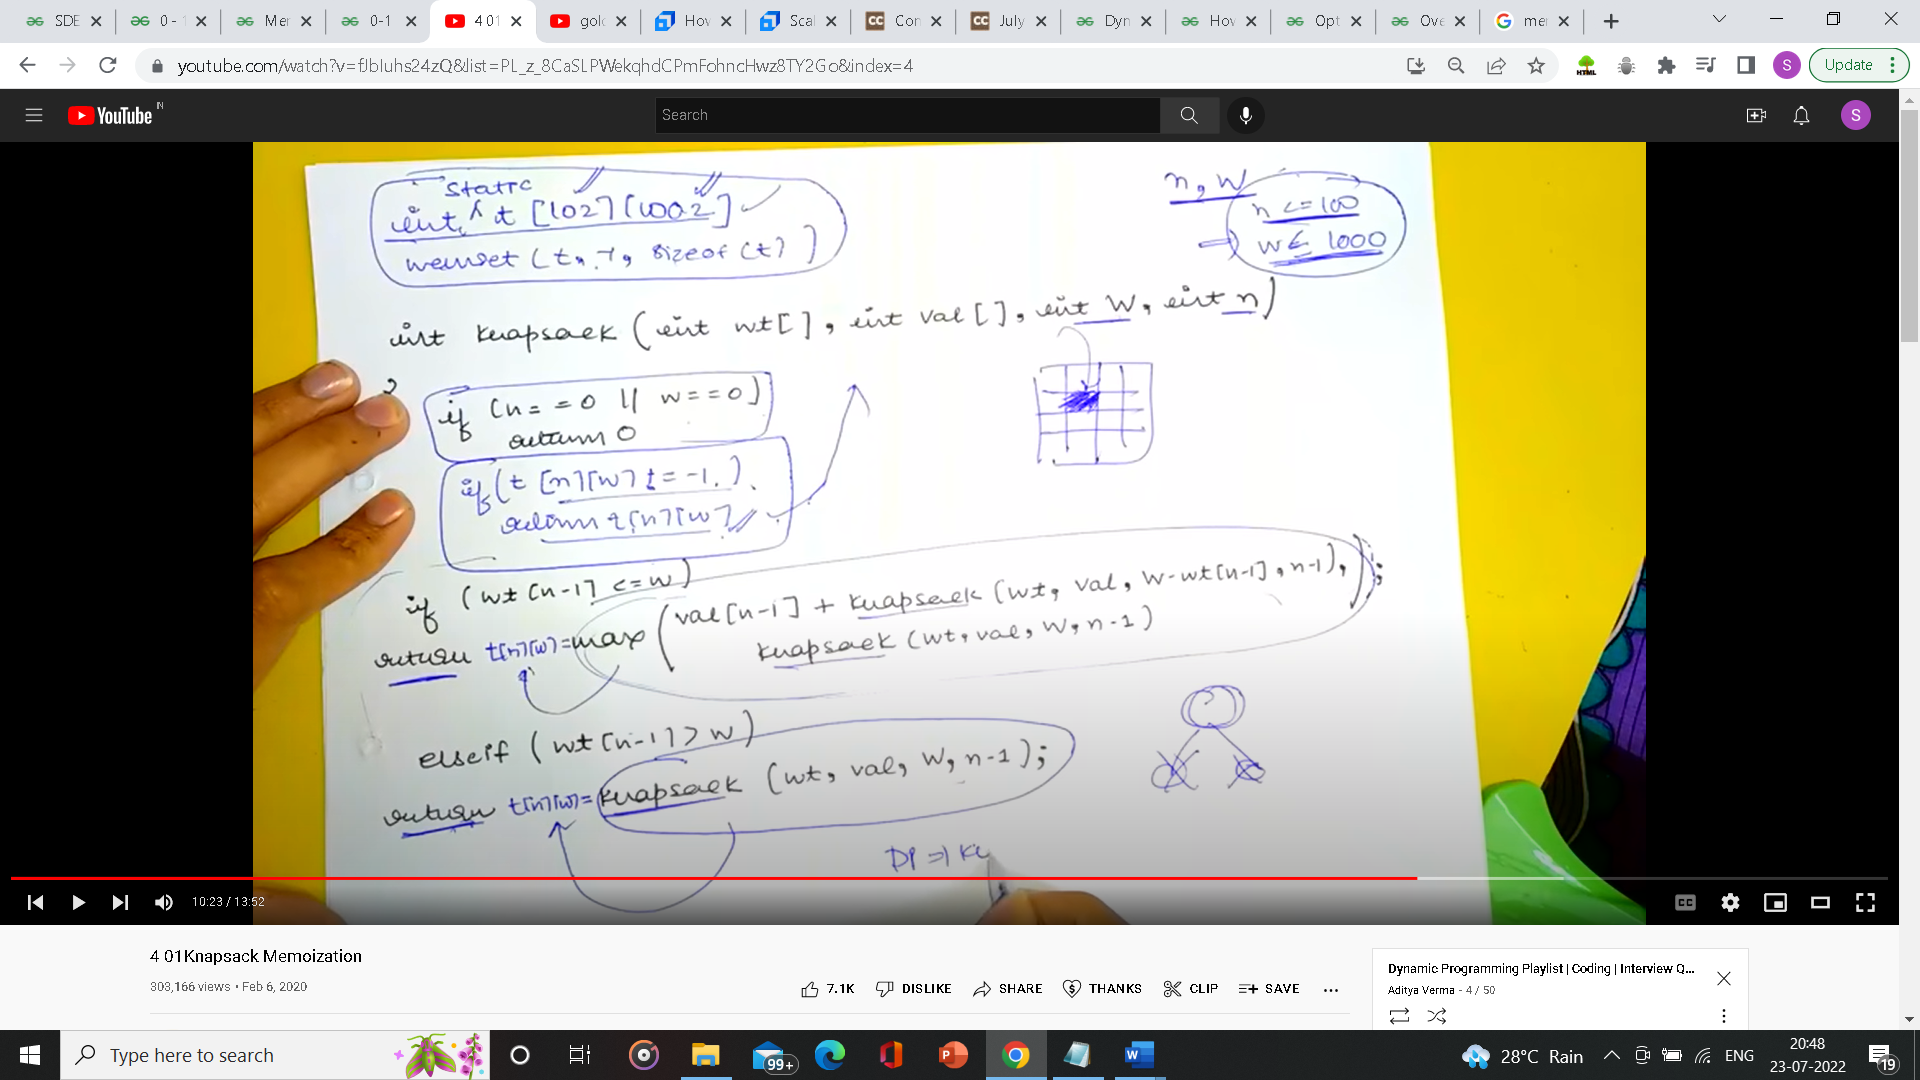 SDE
0 - 1
Mer
0-1
4 01
golc
Hov
Scal
Con
July
Dyn
Hov
Opt
Ove
mer
youtube.com/watch?v=fJbIuhs24zQ&list=PL_z_8CaSLPWekqhdCPmFohncHwz8TY2Go&index=4
HTML
S
Update
YouTube IN
Search
S
static
int t [102][1002]
memset (t, -1, sizeof (t))
n, W
n <= 100
=> W ≤ 1000
int knapsack (int wt[], int val[], int W, int n)
{
if (n == 0 || w == 0)
return 0
if (t [n][w] != -1)
return t[n][w]
if (wt[n-1] <= w)
return t[n][w] = max (val[n-1] + knapsack (wt, val, W-wt[n-1], n-1),
knapsack (wt, val, W, n-1));
elseif (wt[n-1] > w)
return t[n][w] = knapsack (wt, val, W, n-1);
DP =>
10:23 / 13:52
CC
4 01Knapsack Memoization
303,166 views • Feb 6, 2020
7.1K
DISLIKE
SHARE
THANKS
CLIP
SAVE
Dynamic Programming Playlist | Coding | Interview Q...
Aditya Verma - 4 / 50
Type here to search
99+
28°C Rain
ENG
20:48
23-07-2022
19